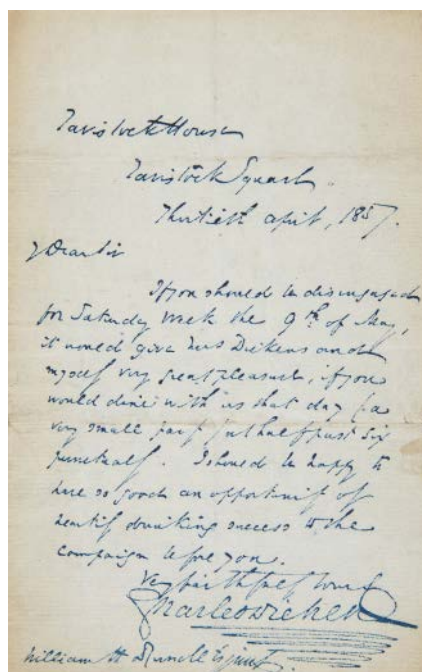 Tavistock House
Tavistock Square.
Thirtieth April, 1857.
Dear Sir
If you should be disengaged
for Saturday week the 9th. of May,
it would give Mrs Dickens and
myself very great pleasure, if you
would dine with us that day (a
very small party) at half past six
punctually. I should be happy to
have so good an opportunity of
heartily drinking success to the
campaign before you.
Very faithfully Yours
Charles Dickens
William H Russell Esquire.